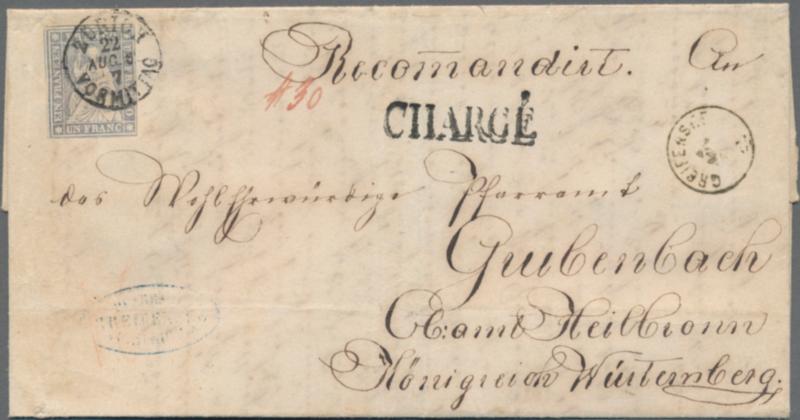 ZÜRICH
22
AUG 5
7
VORMITTAG
EIN FRANKEN
UN FRANC
Recomandirt. An
#30
CHARGÉ
GREIFENSEE
das Wohlehrwürdige Pfarramt
Grubenbach
Ob:amt Heilbronn
Königreich Würtemberg.